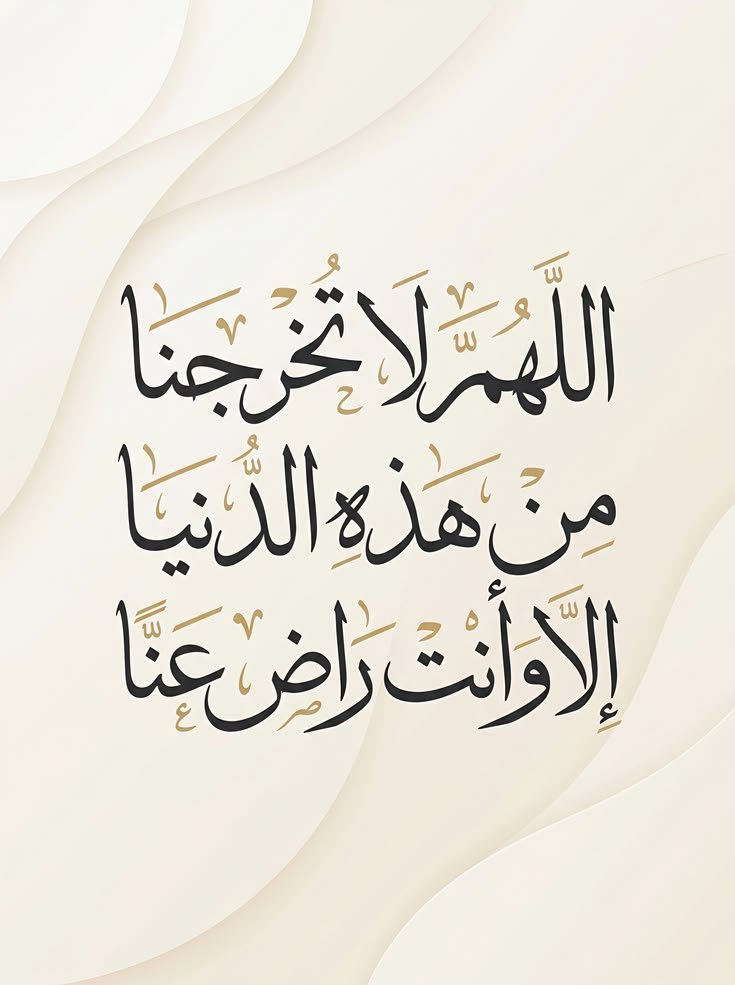 اللَّهُمَّ لَا تُخْرِجْنَا
مِنْ هَذِهِ الدُّنْيَا
إِلَّا وَأَنْتَ رَاضٍ عَنَّا